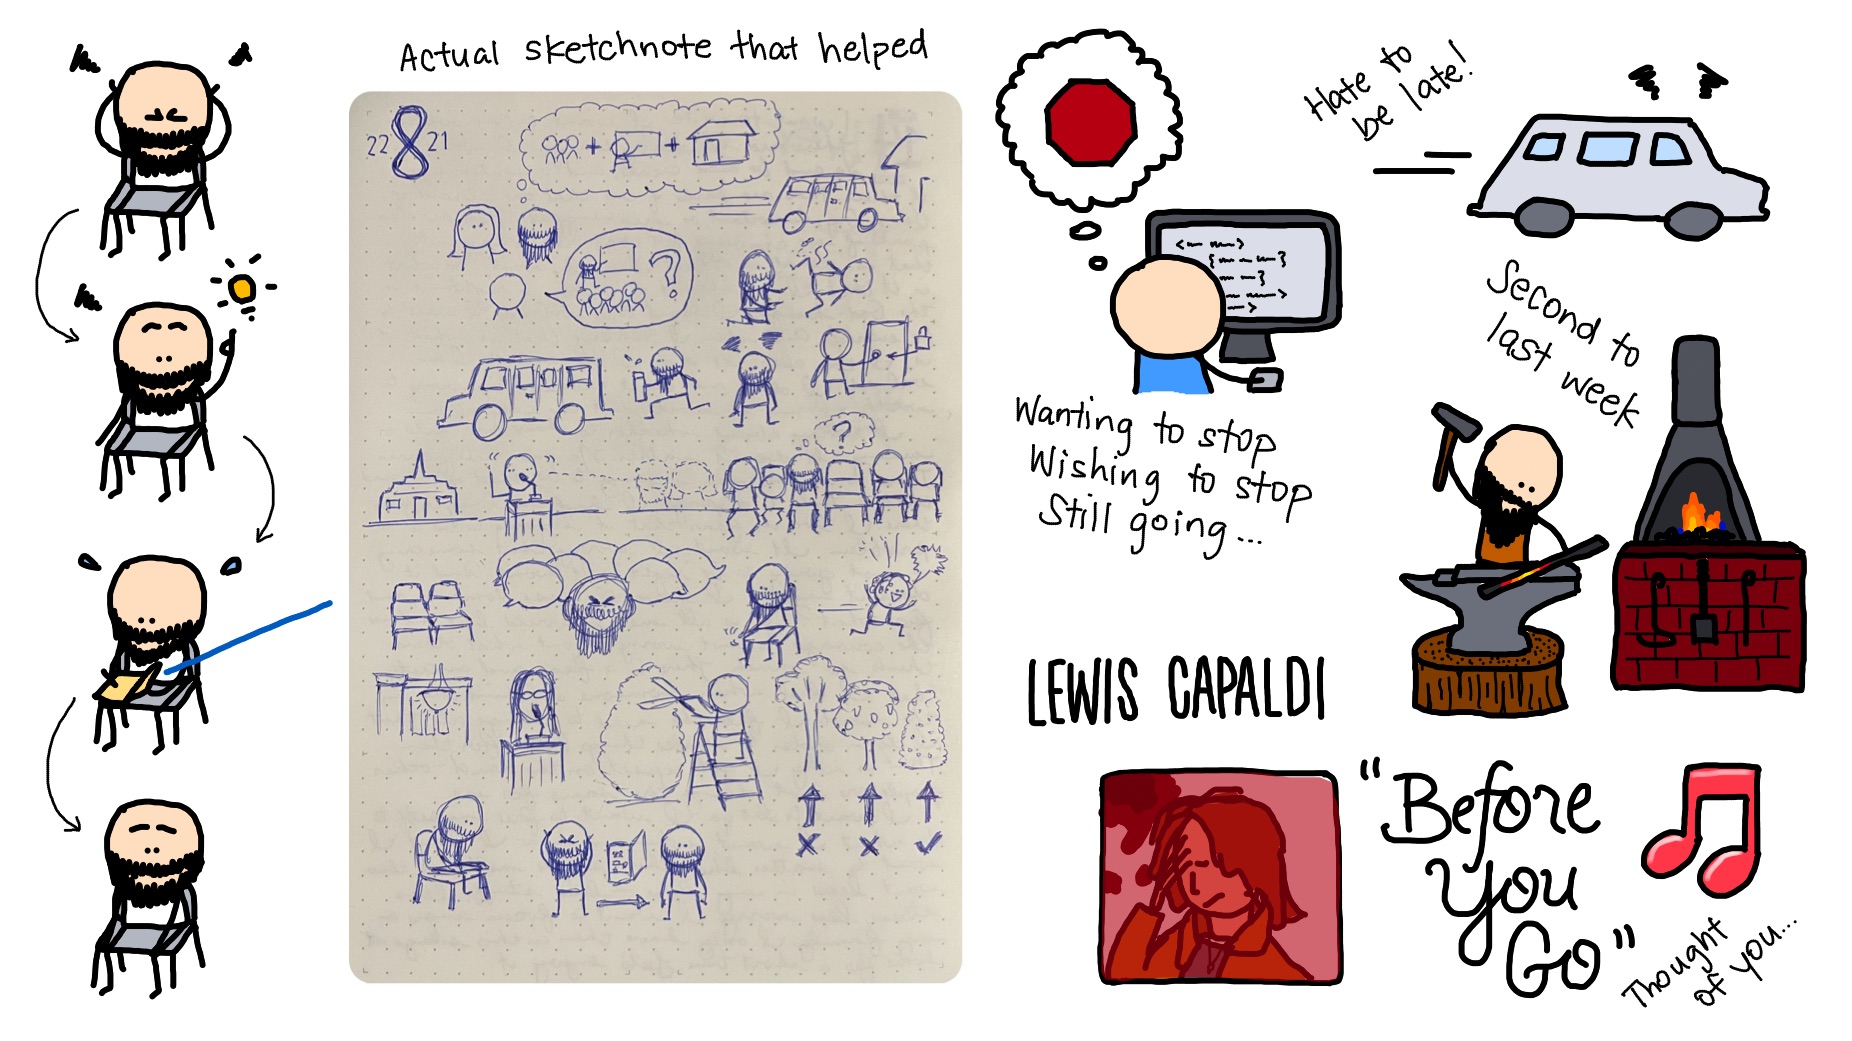 Actual sketchnote that helped
22 8 21
?
?
Hate to
be late!
Wanting to stop
Wishing to stop
Still going...
Second to
last week
LEWIS CAPALDI
"Before
You
Go"
Thought
of you...